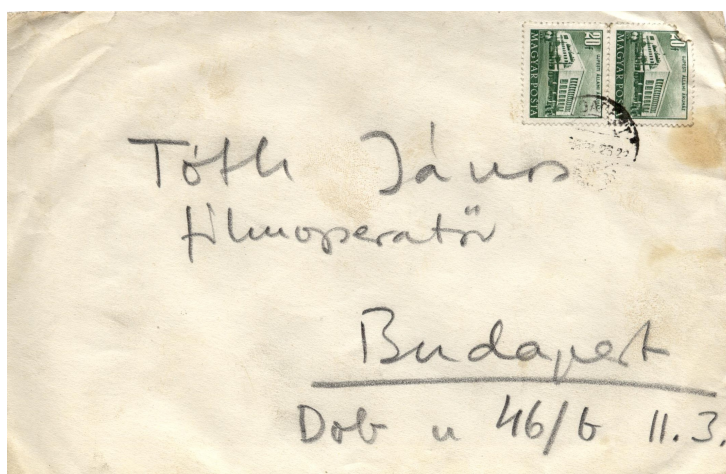 20
MAGYAR POSTA
20
MAGYAR POSTA
Tóth János
filmoperatőr
Budapest
Dob u 46/b II.3.